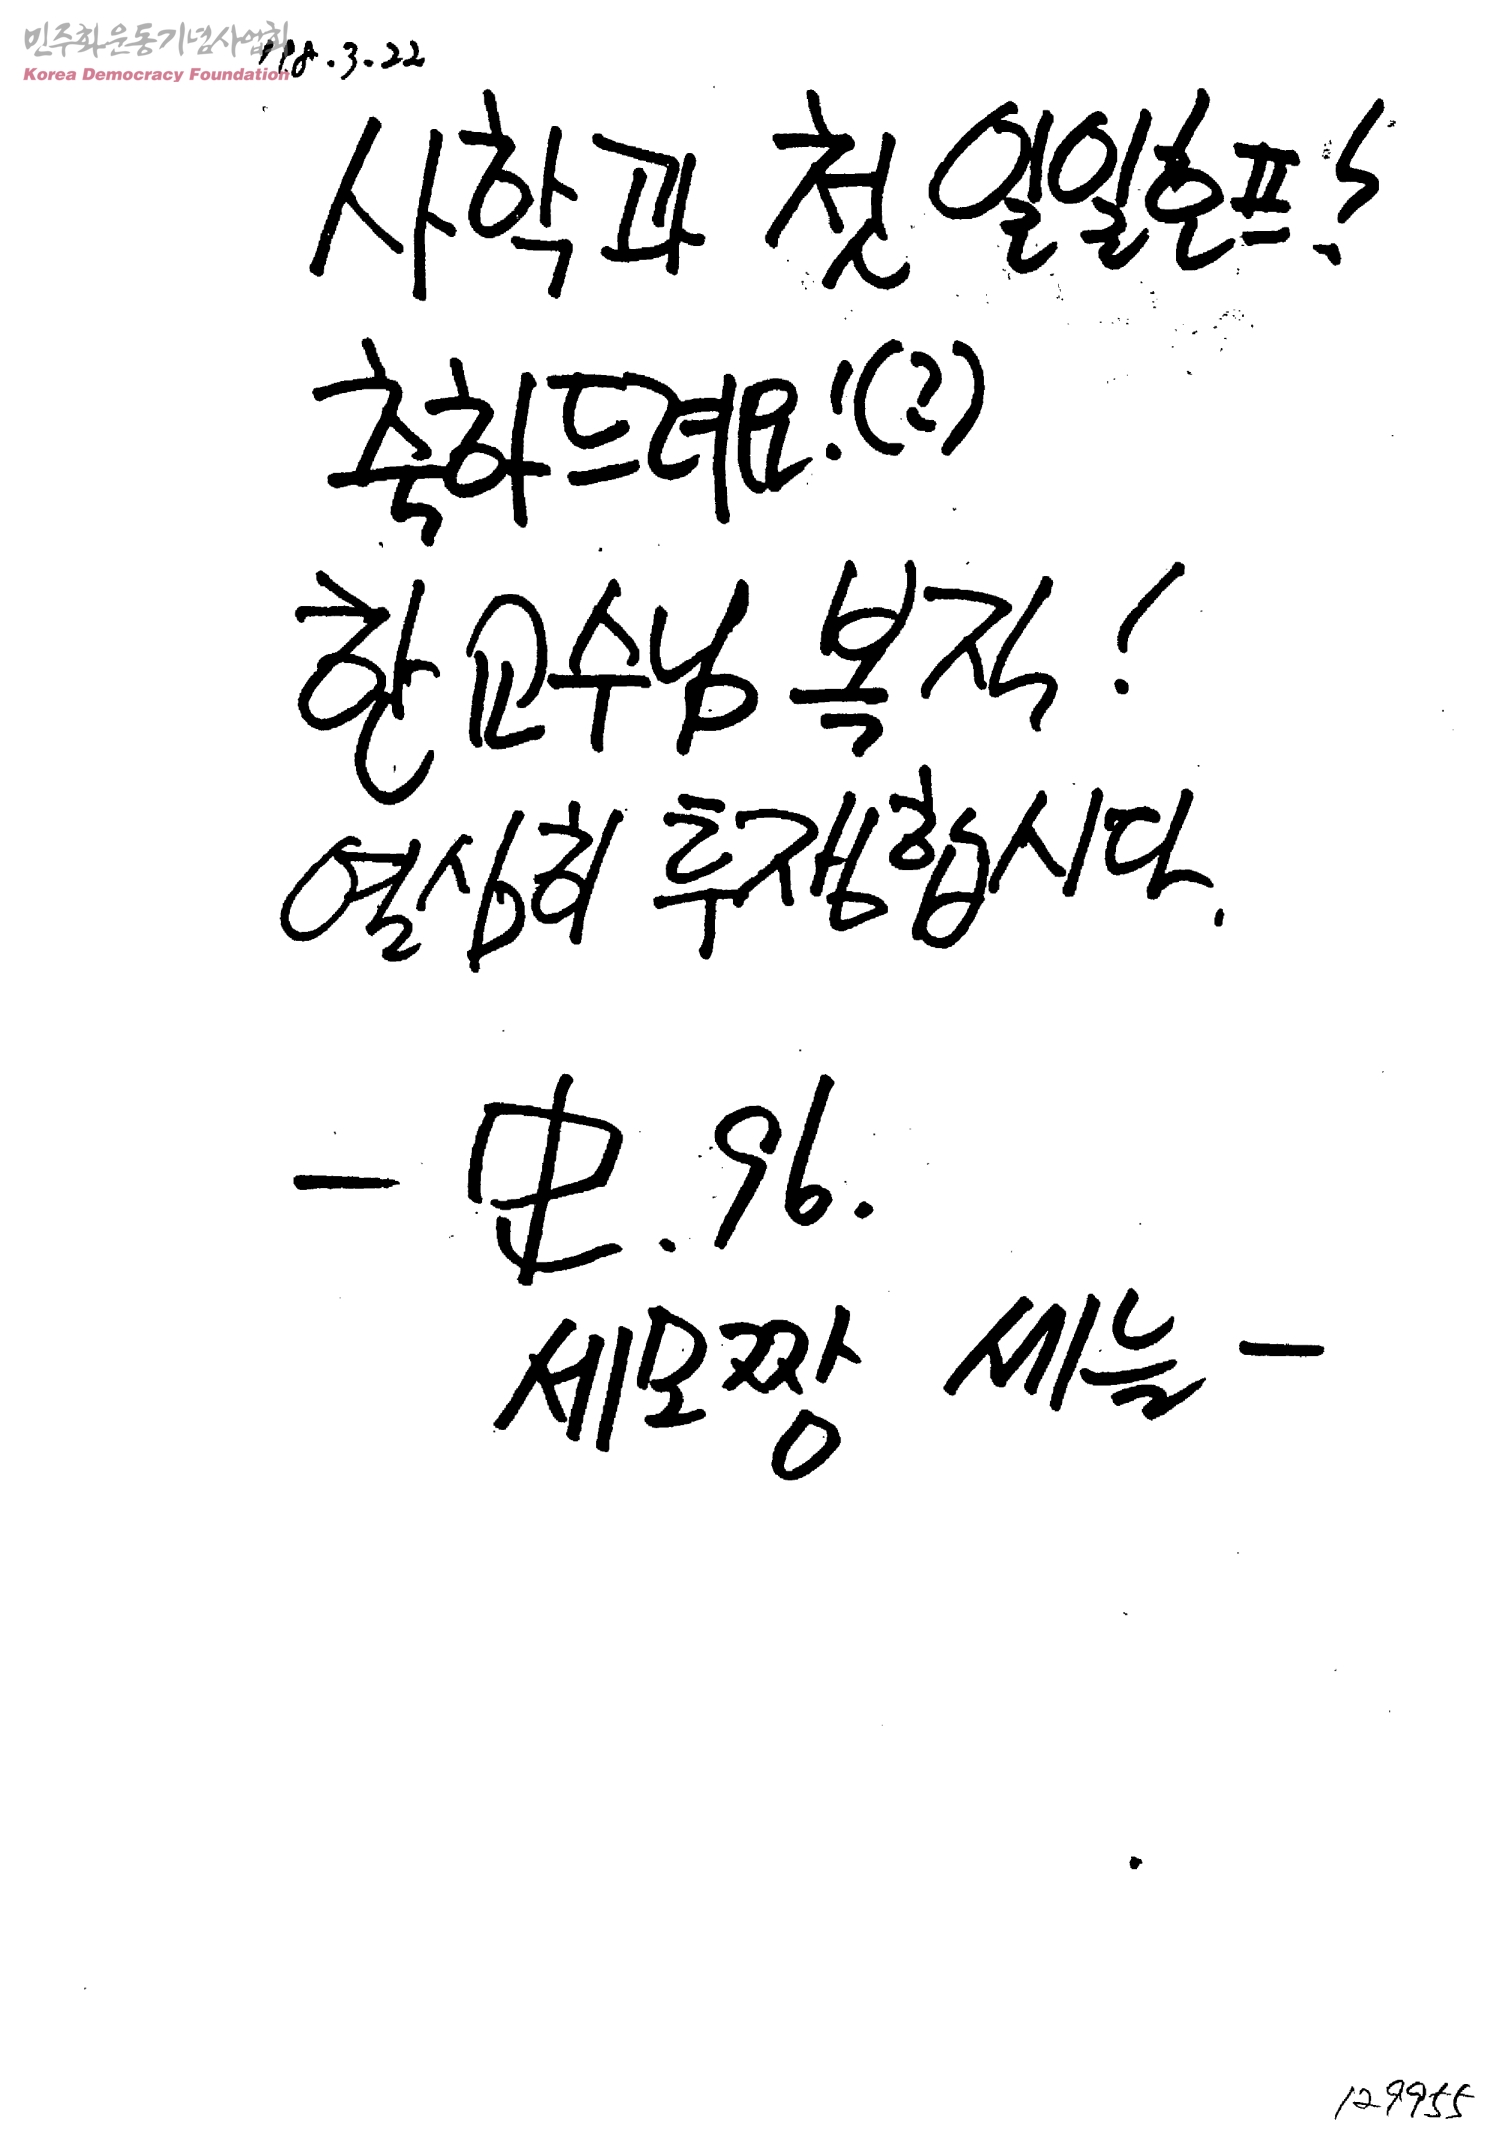 민주화운동기념사업회
Korea Democracy Foundation
98.3.22
사학과 첫 일일호프!
축하드려요!(?)
한교수님 복직!
열심히 투쟁합시다.
- 史.96.
세모짱 세늘 -
129955